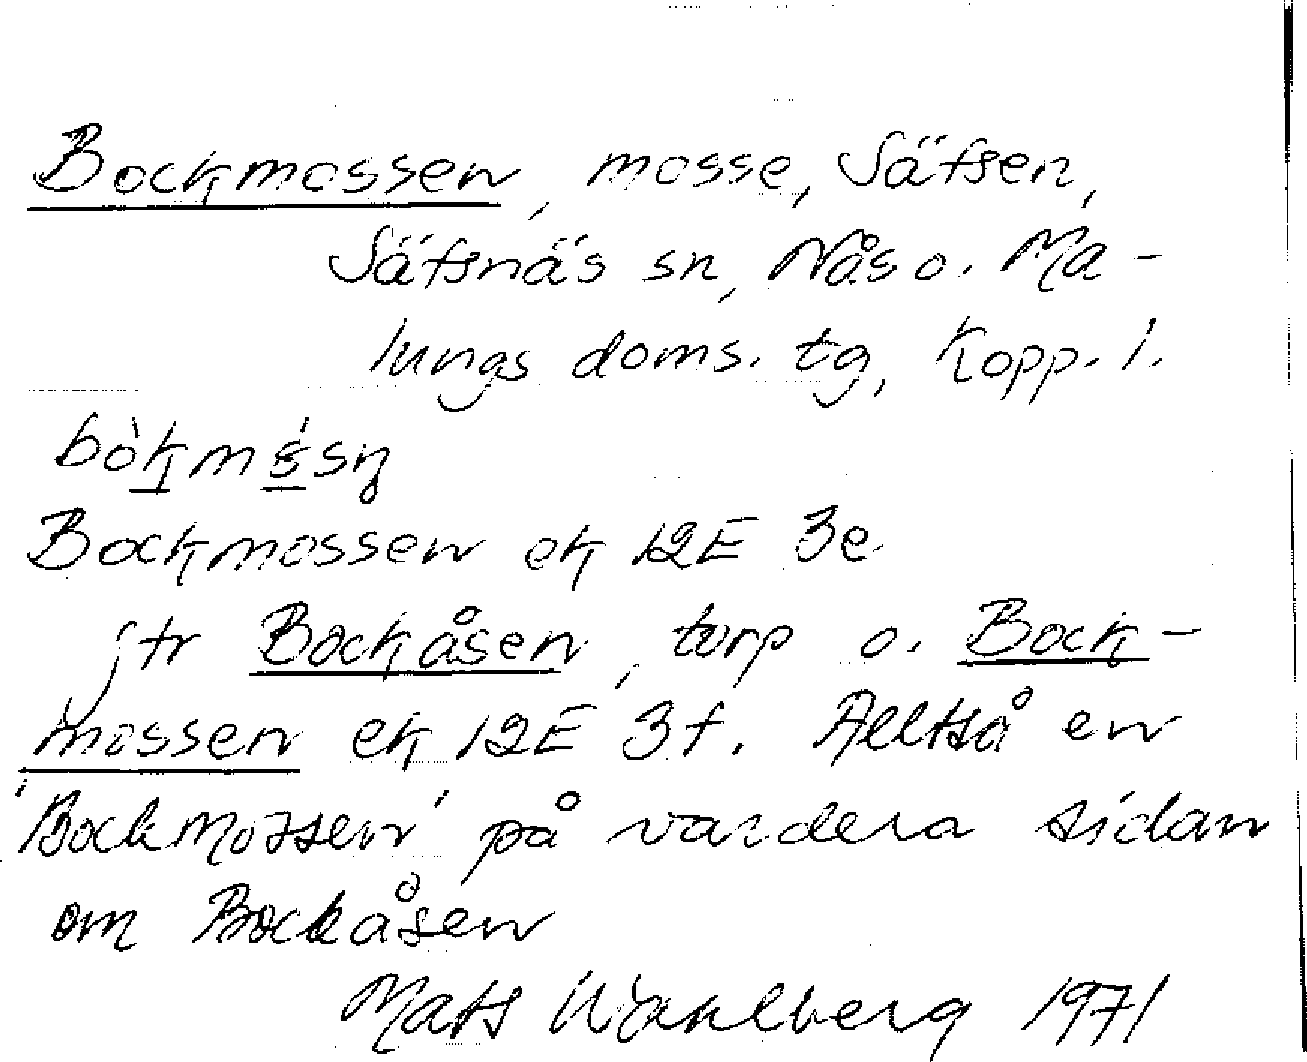 Bockmossen, mosse, Säfsen,
Säfsnäs sn, Nås o. Ma-
lungs doms. tg, Kopp. l.
Bockmossen ek 12E 3e
jfr Bockåsen, torp o. Bock-
mossen ek 12E 3f. Alltså en
'Bockmossen' på vardera sidan
om Bockåsen
Mats Wahlberg 1971